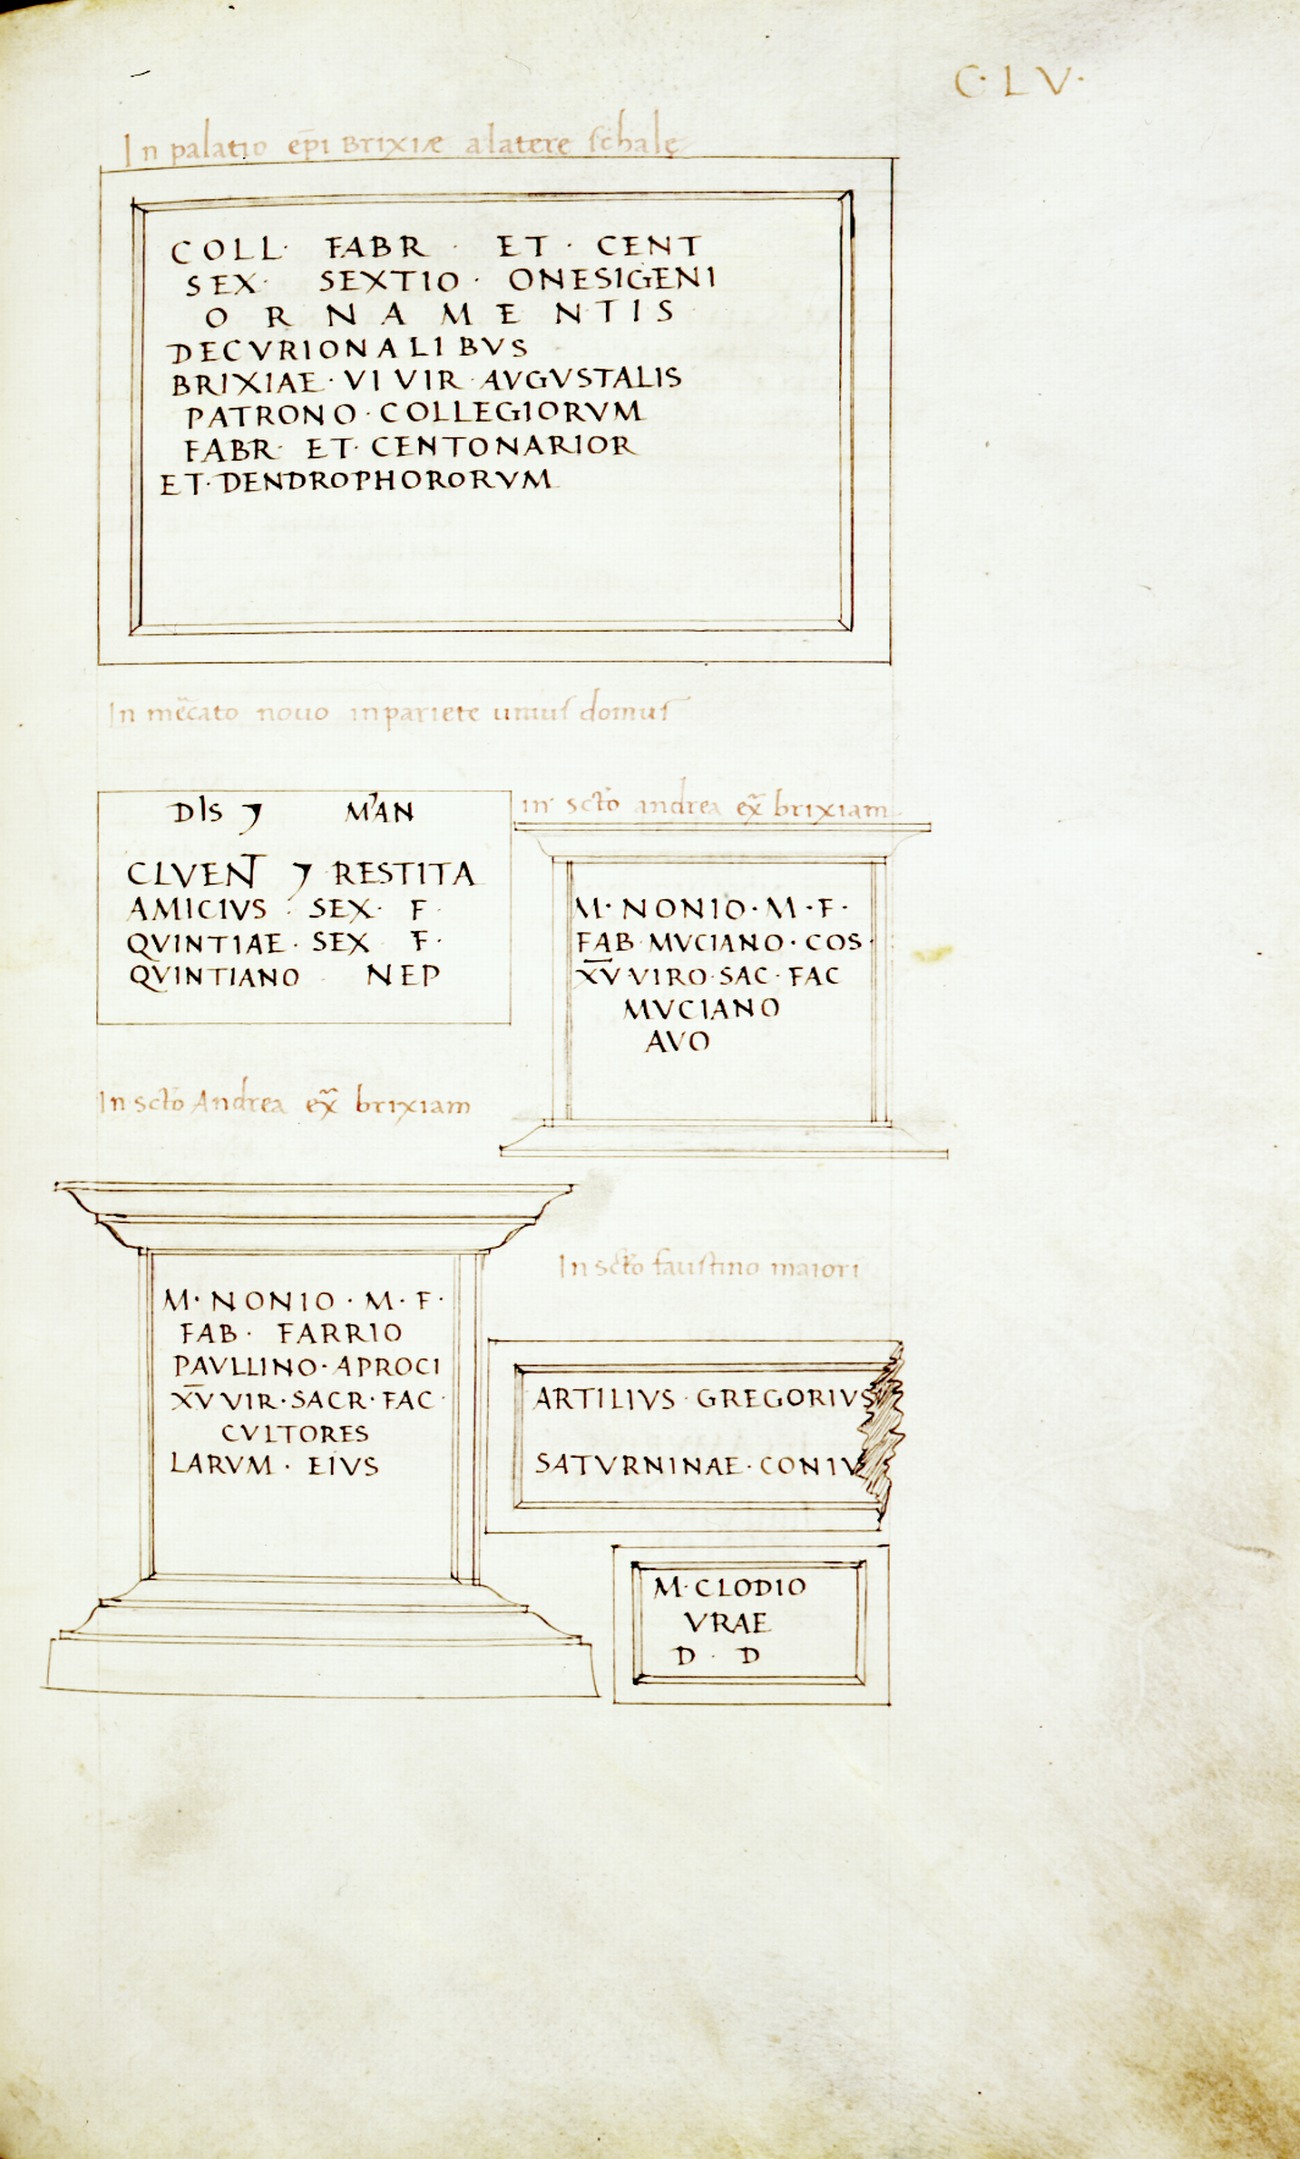 C·LV·
In palatio ep̄i Brixiæ a latere schalę
COLL· FABR · ET · CENT
SEX· SEXTIO · ONESIGENI
ORNAMENTIS
DECVRIONALIBVS
BRIXIAE · VI VIR AVGVSTALIS
PATRONO · COLLEGIORVM
FABR· ET· CENTONARIOR
ET·DENDROPHORORVM
In mẽcato nouo in pariete unius domus
DIS 7 MAN
CLVENT 7 RESTITA
AMICIVS · SEX· F·
QVINTIAE · SEX F·
QVINTIANO NEP
in sctō andrea ex̄ brixiam
M· NONIO· M·F·
FAB MVCIANO· COS·
X̅V̅ VIRO·SAC·FAC
MVCIANO
AVO
In sctō Andrea ex̄ brixiam
M· NONIO · M· F·
FAB· FARRIO
PAVLLINO·APROCI
X̅V̅ VIR·SACR·FAC·
CVLTORES
LARVM · EIVS
In sctō faustino maiori
ARTILIVS · GREGORIVS
SATVRNINAE·CONIV
M·CLODIO
VRAE
D · D